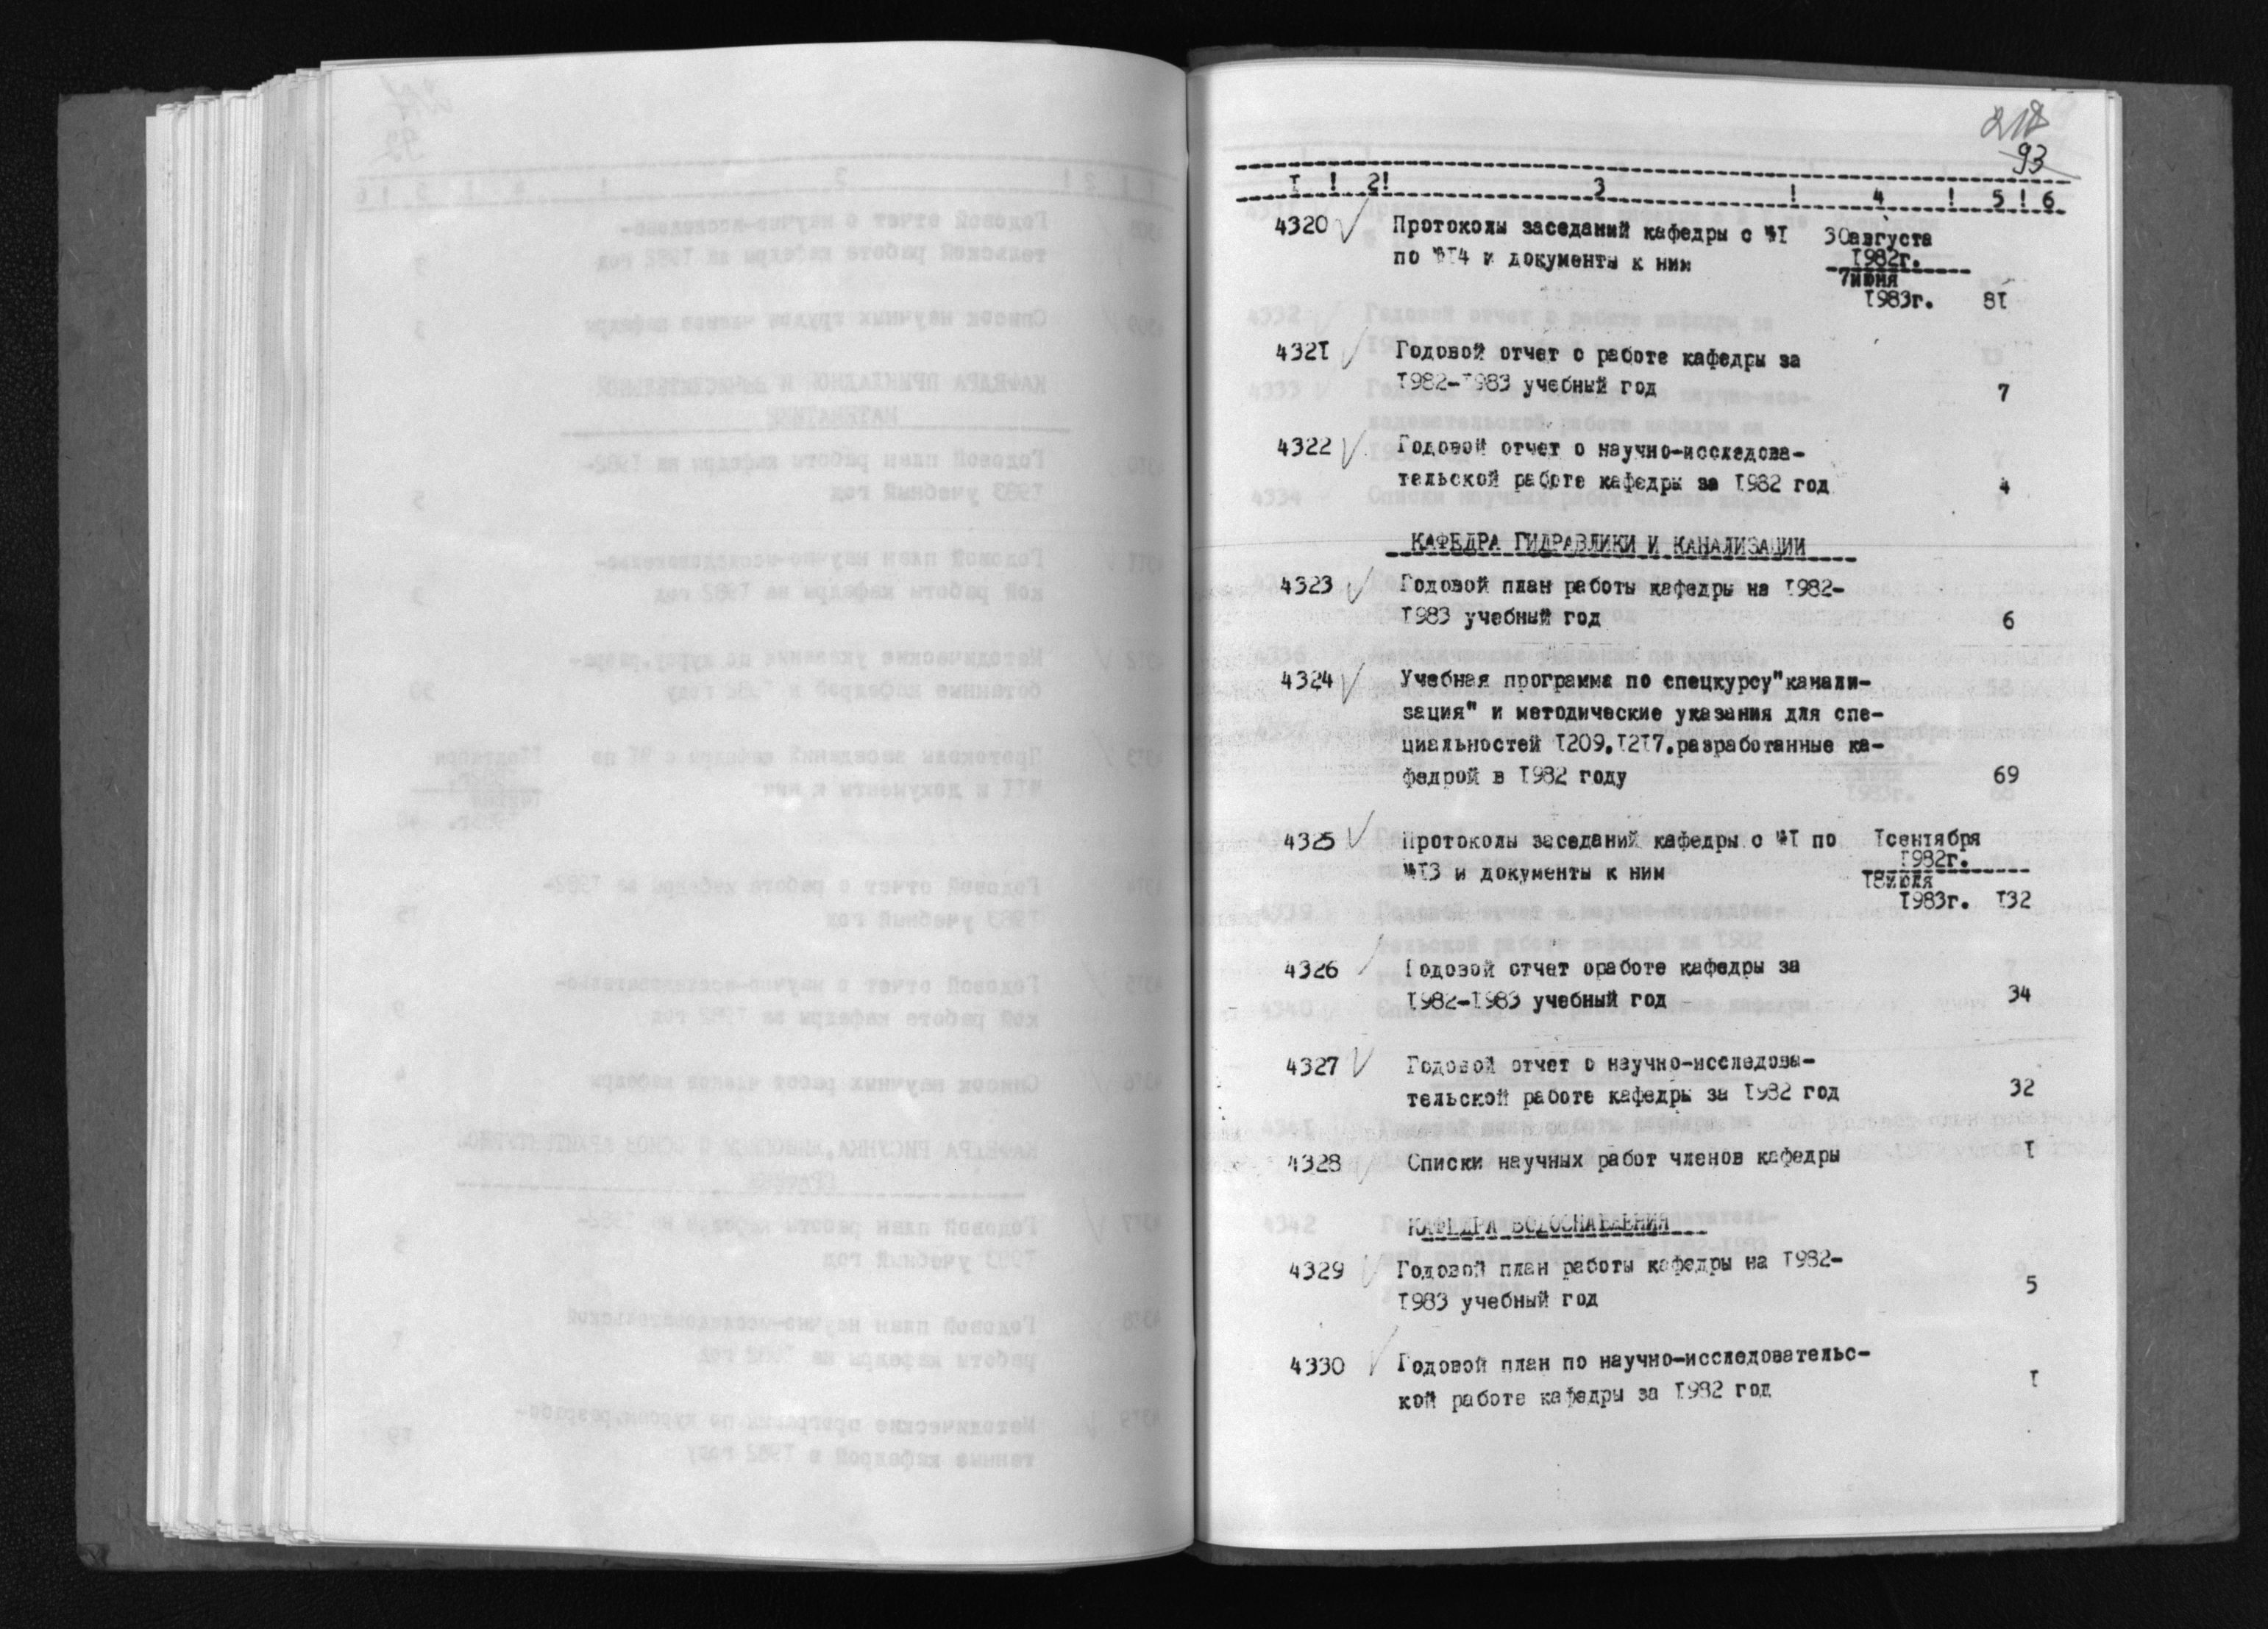 218
93
I ! 2! 3 ! 4 ! 5 ! 6
4320 Протоколы заседаний кафедры с №I 30августа
по №I4 и документы к ним I982г.
7июня
I983г. 8I
432I Годовой отчет о работе кафедры за
I982-I983 учебный год 7
4322 Годовой отчет о научно-исследова-
тельской работе кафедры за I982 год 4
КАФЕДРА ГИДРАВЛИКИ И КАНАЛИЗАЦИИ
4323 Годовой план работы кафедры на I982-
I983 учебный год 6
4324 Учебная программа по спецкурсу"канали-
зация" и методические указания для спе-
циальностей I209,I2I7,разработанные ка-
федрой в I982 году 69
4325 Протоколы заседаний кафедры с №I по Iсентября
№I3 и документы к ним I982г.
I8июля
I983г. I32
4326 Годовой отчет оработе кафедры за
I982-I983 учебный год 34
4327 Годовой отчет о научно-исследова-
тельской работе кафедры за I982 год 32
4328 Списки научных работ членов кафедры I
КАФЕДРА ВОДОСНАБЖЕНИЯ
4329 Годовой план работы кафедры на I982-
I983 учебный год 5
4330 Годовой план по научно-исследовательс-
кой работе кафедры за I982 год I